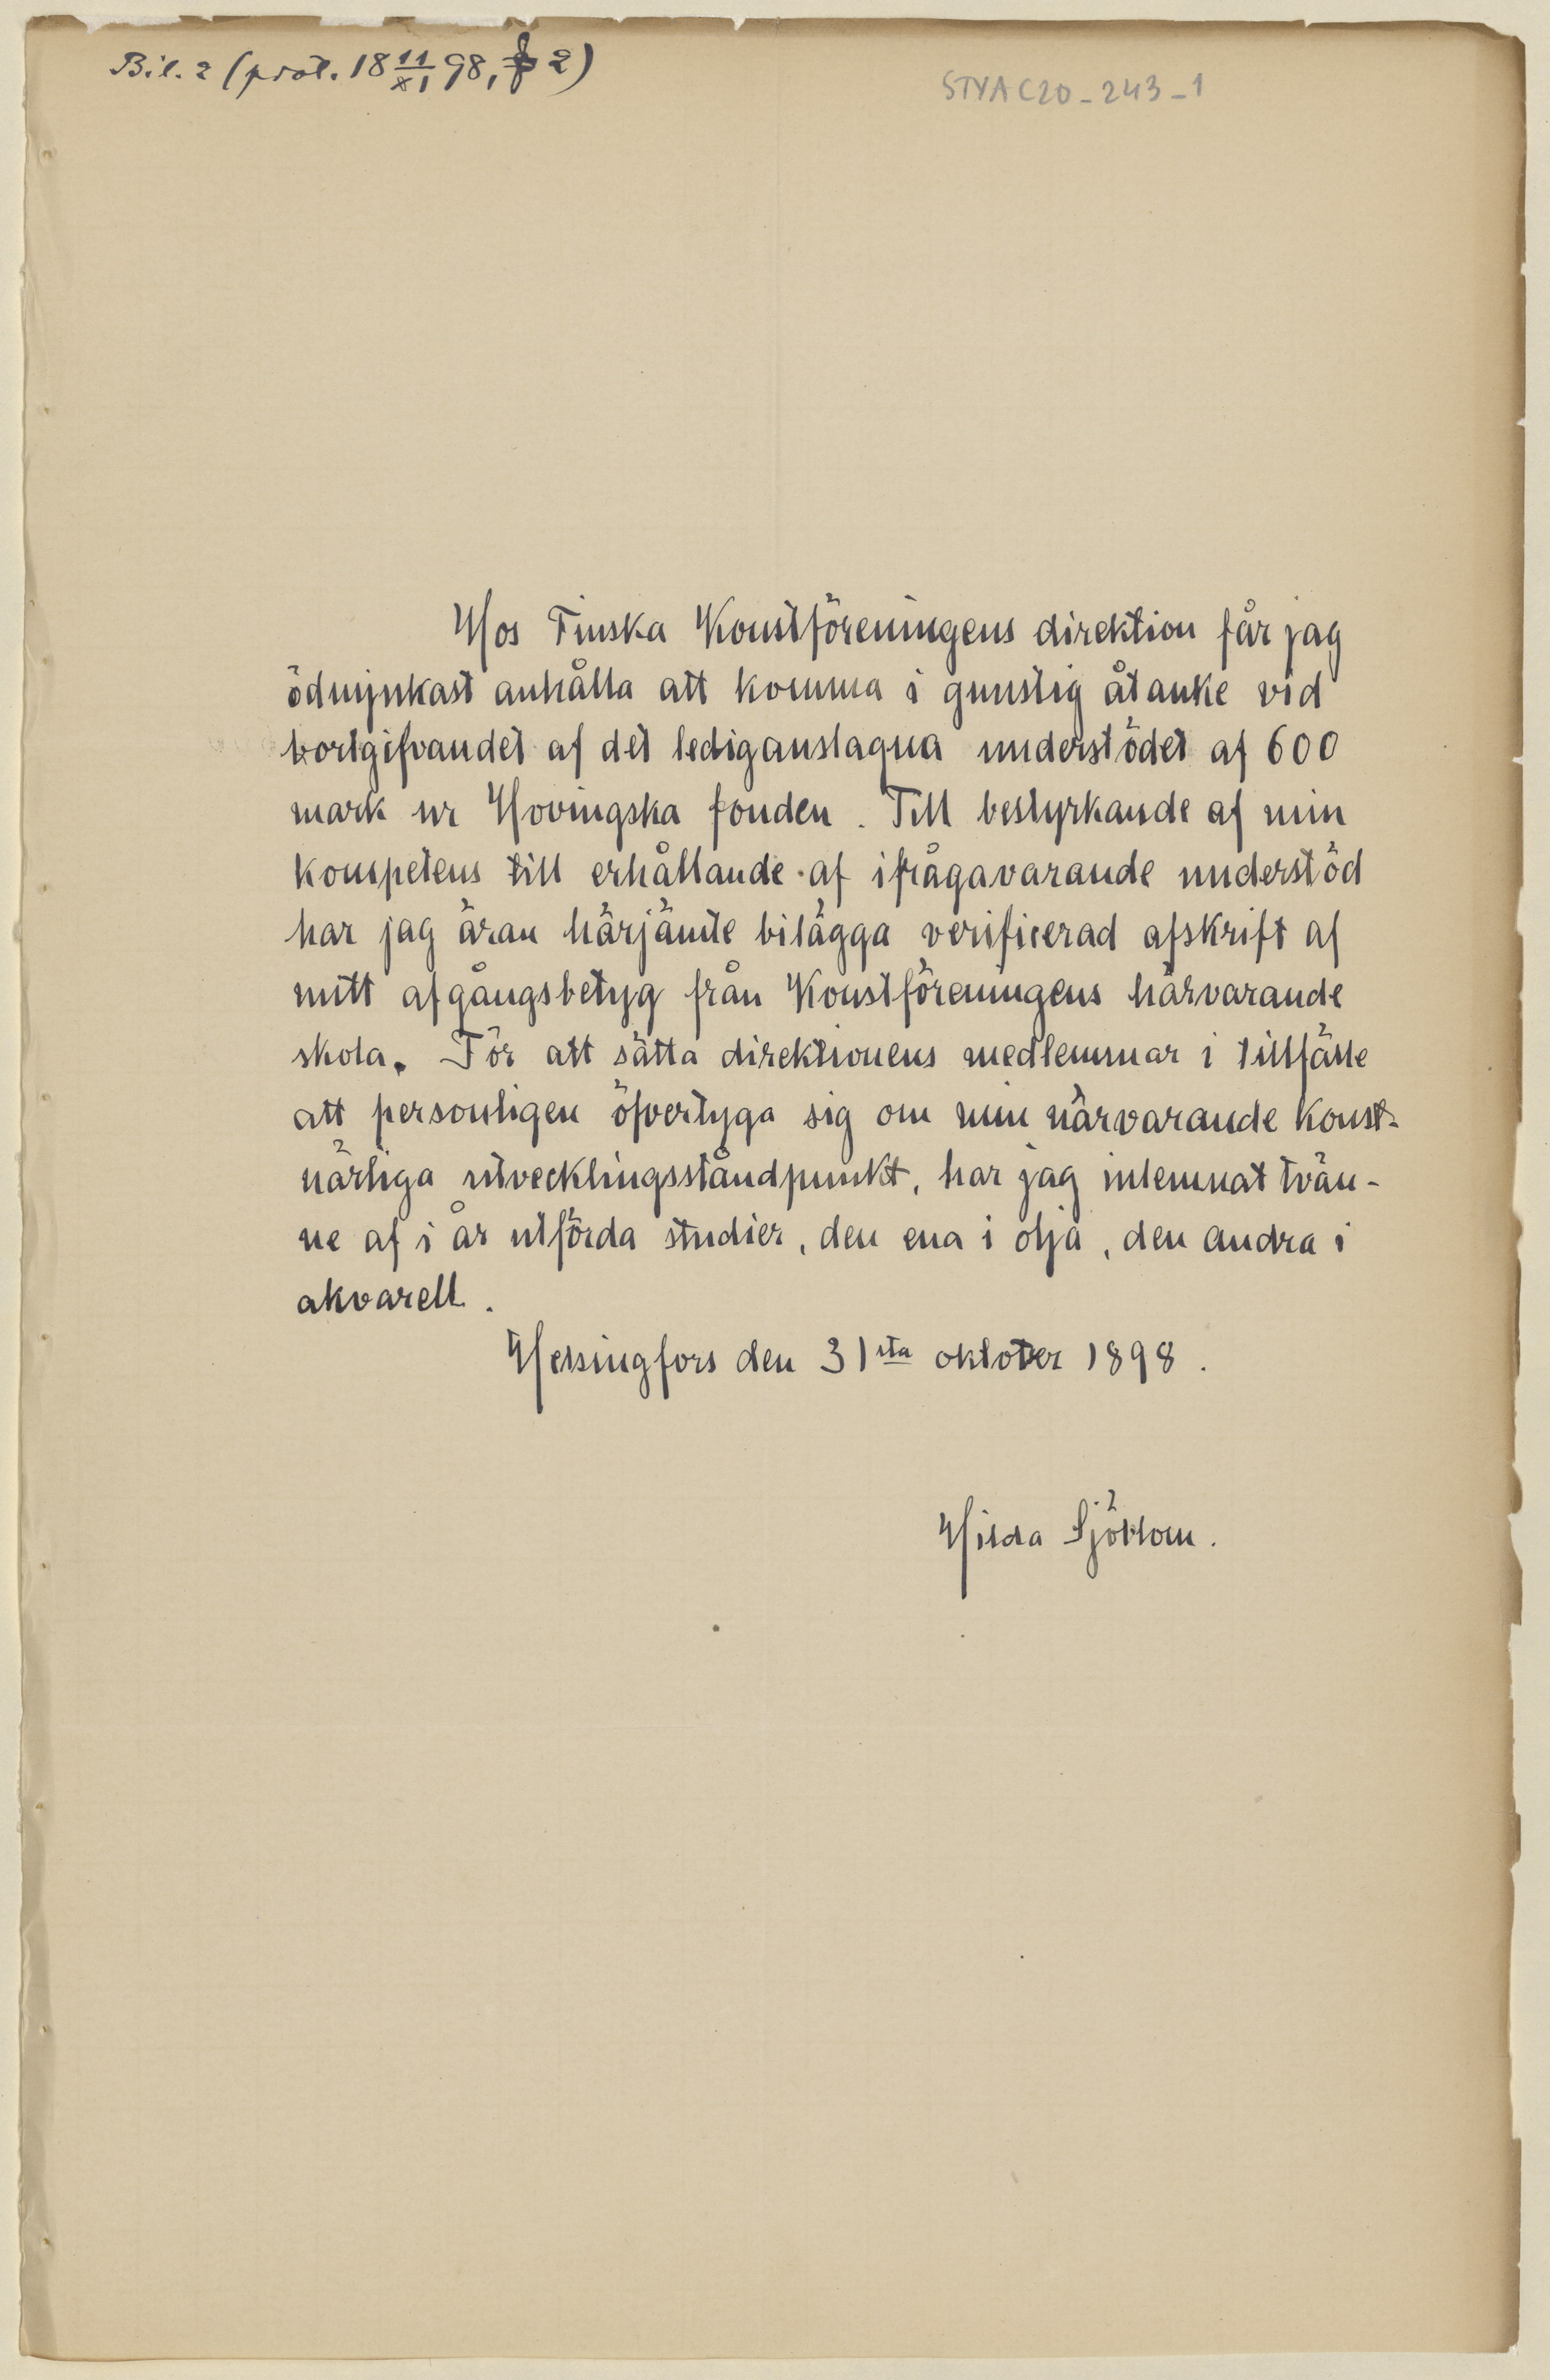 Bil. 2 (prot. 18 11/XI 98, § 2)
STYA C20_243_1
Hos Finska Konstföreningens direktion får jag
ödmjukast anhålla att komma i gunstig åtanke vid
bortgifvandet af det lediganslagna understödet af 600
mark ur Hovingska fonden. Till bestyrkande af min
kompetens till erhållande af ifrågavarande understöd
har jag äran härjämte bilägga verificerad afskrift af
mitt afgångsbetyg från Konstföreningens härvarande
skola. För att sätta direktionens medlemmar i tillfälle
att personligen öfvertyga sig om min närvarande konst-
närliga utvecklingsståndpunkt, har jag inlemnat tvän-
ne af i år utförda studier, den ena i olja, den andra i
akvarell.
Helsingfors den 31sta oktober 1898.
Hilda Sjöblom.